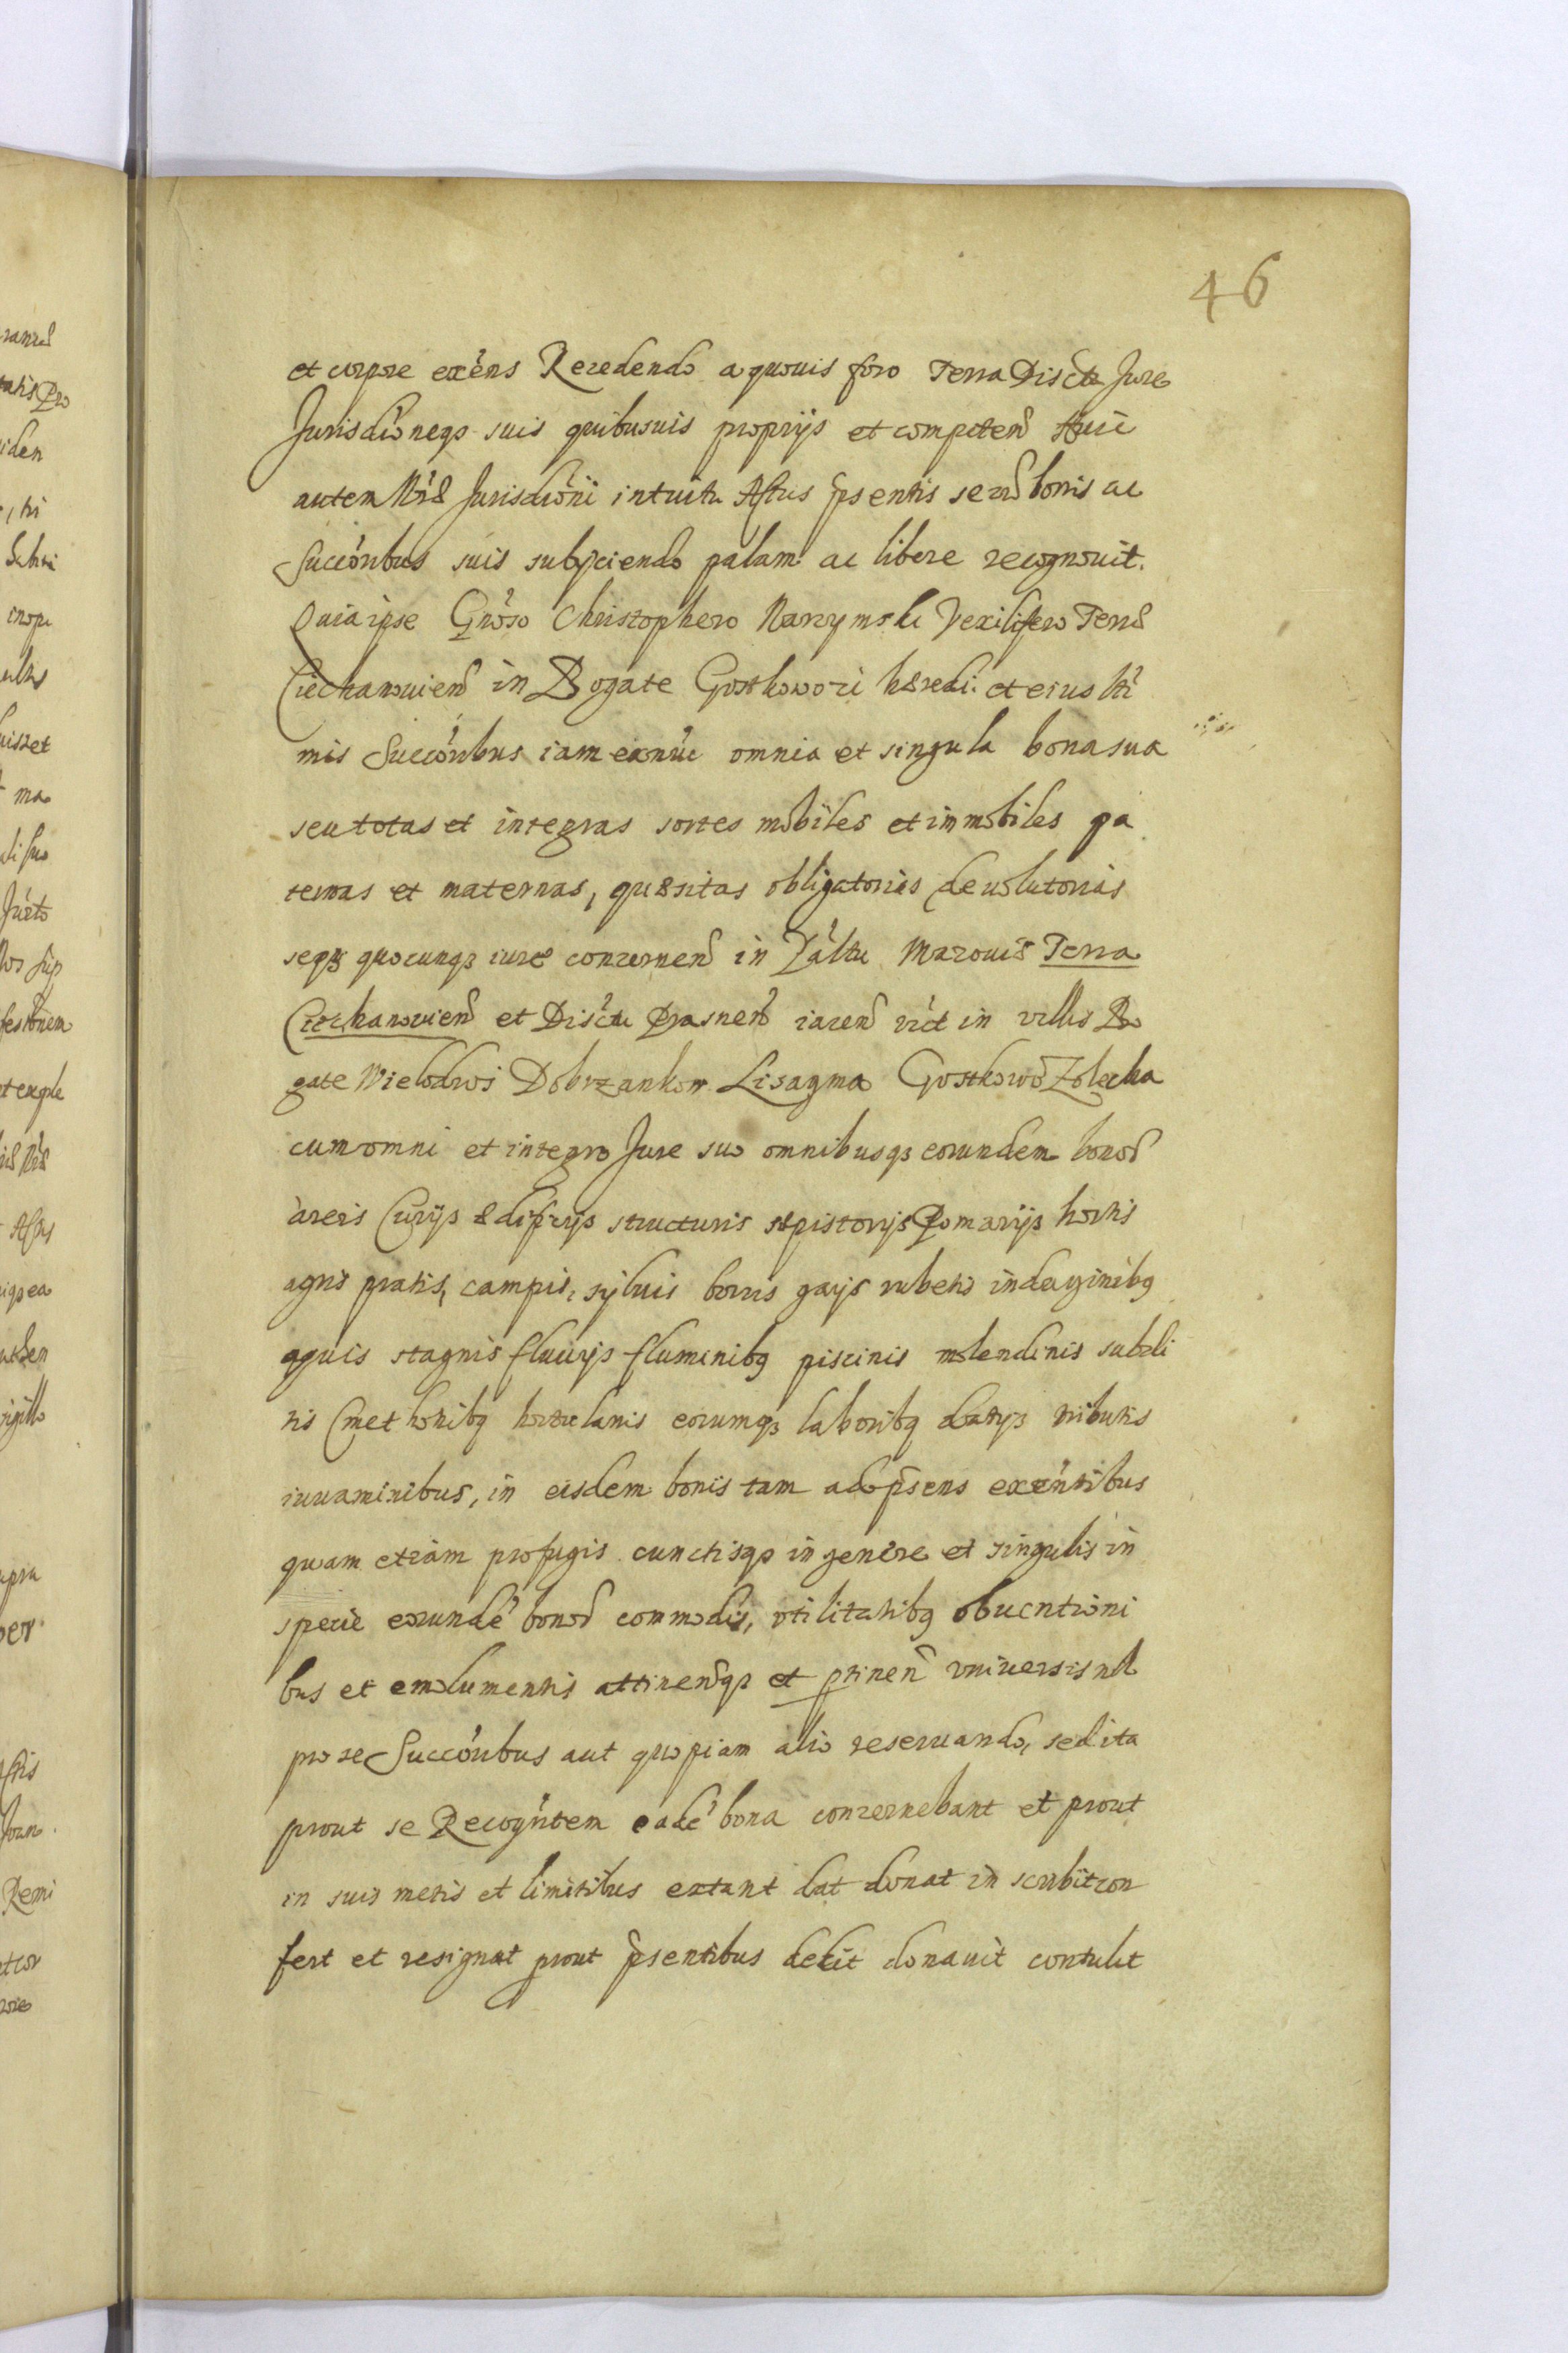 46
et corpore exẽns Recedendo a quouis foro Terra Districtu Jure
Jurisdiõneqʒ suis quibusuis proprijs et competeñ Huic
autem Nrã Jurisdiõni intuitu Actus p̃sentis se cũ bonis ac
Succõribus suis subijciendo palam ac libere recognouit.
Quia ipse Gnõso Christophero Narzymski Vexilifero Terræ
Ciechanouieñ in Bogate Gostkowo zi hæredi et eius lti
mis Succõribus iam exnũc omnia et singula bona sua
seu totas et integras sortes mobiles et immobiles pa
ternas et maternas, quæsitas obligatorias deuolutorias
seqʒ quocunqʒ iure concerneñ in Pãltu Mazouiæ Terra
Ciechanouieñ et Disctu Prasneñ iaceñ vičt in villis Bo
gate Wielodroz Dobrzankow Lisagma Gostkowo Zolecka
cum omni et integro Jure suo omnibusqʒ eorundem bonoꝝ
areis Curijs ædificijs structuris sæpistorijs Pomarijs hortis
agris pratis, campis, syluis borris gays rubetis indaginibꝯ
aquis stagnis fluuijs fluminibꝯ piscinis molendinis subdi
tis Cmethonibꝯ hortulanis eorumqʒ laboribꝯ datijs tributis
iuuaminibus, in eisdem bonis tam ad p̃sens exẽntibus
quam etiam profugis cunctisqʒ in genere et singulis in
specie eorundẽ bonoꝝ commodis, vtilitatibꝯ obuentioni
bus et emolumentis attineñqʒ et ꝑtineñ vniuersis nil
pro se Succõribus aut quopiam alio reseruando, sed ita
prout se Recogñtem eadẽ bona concernebant et prout
in suis metis et limitibus extant dat donat inscribit con
fert et resignat prout p̃sentibus dedit donauit contulit